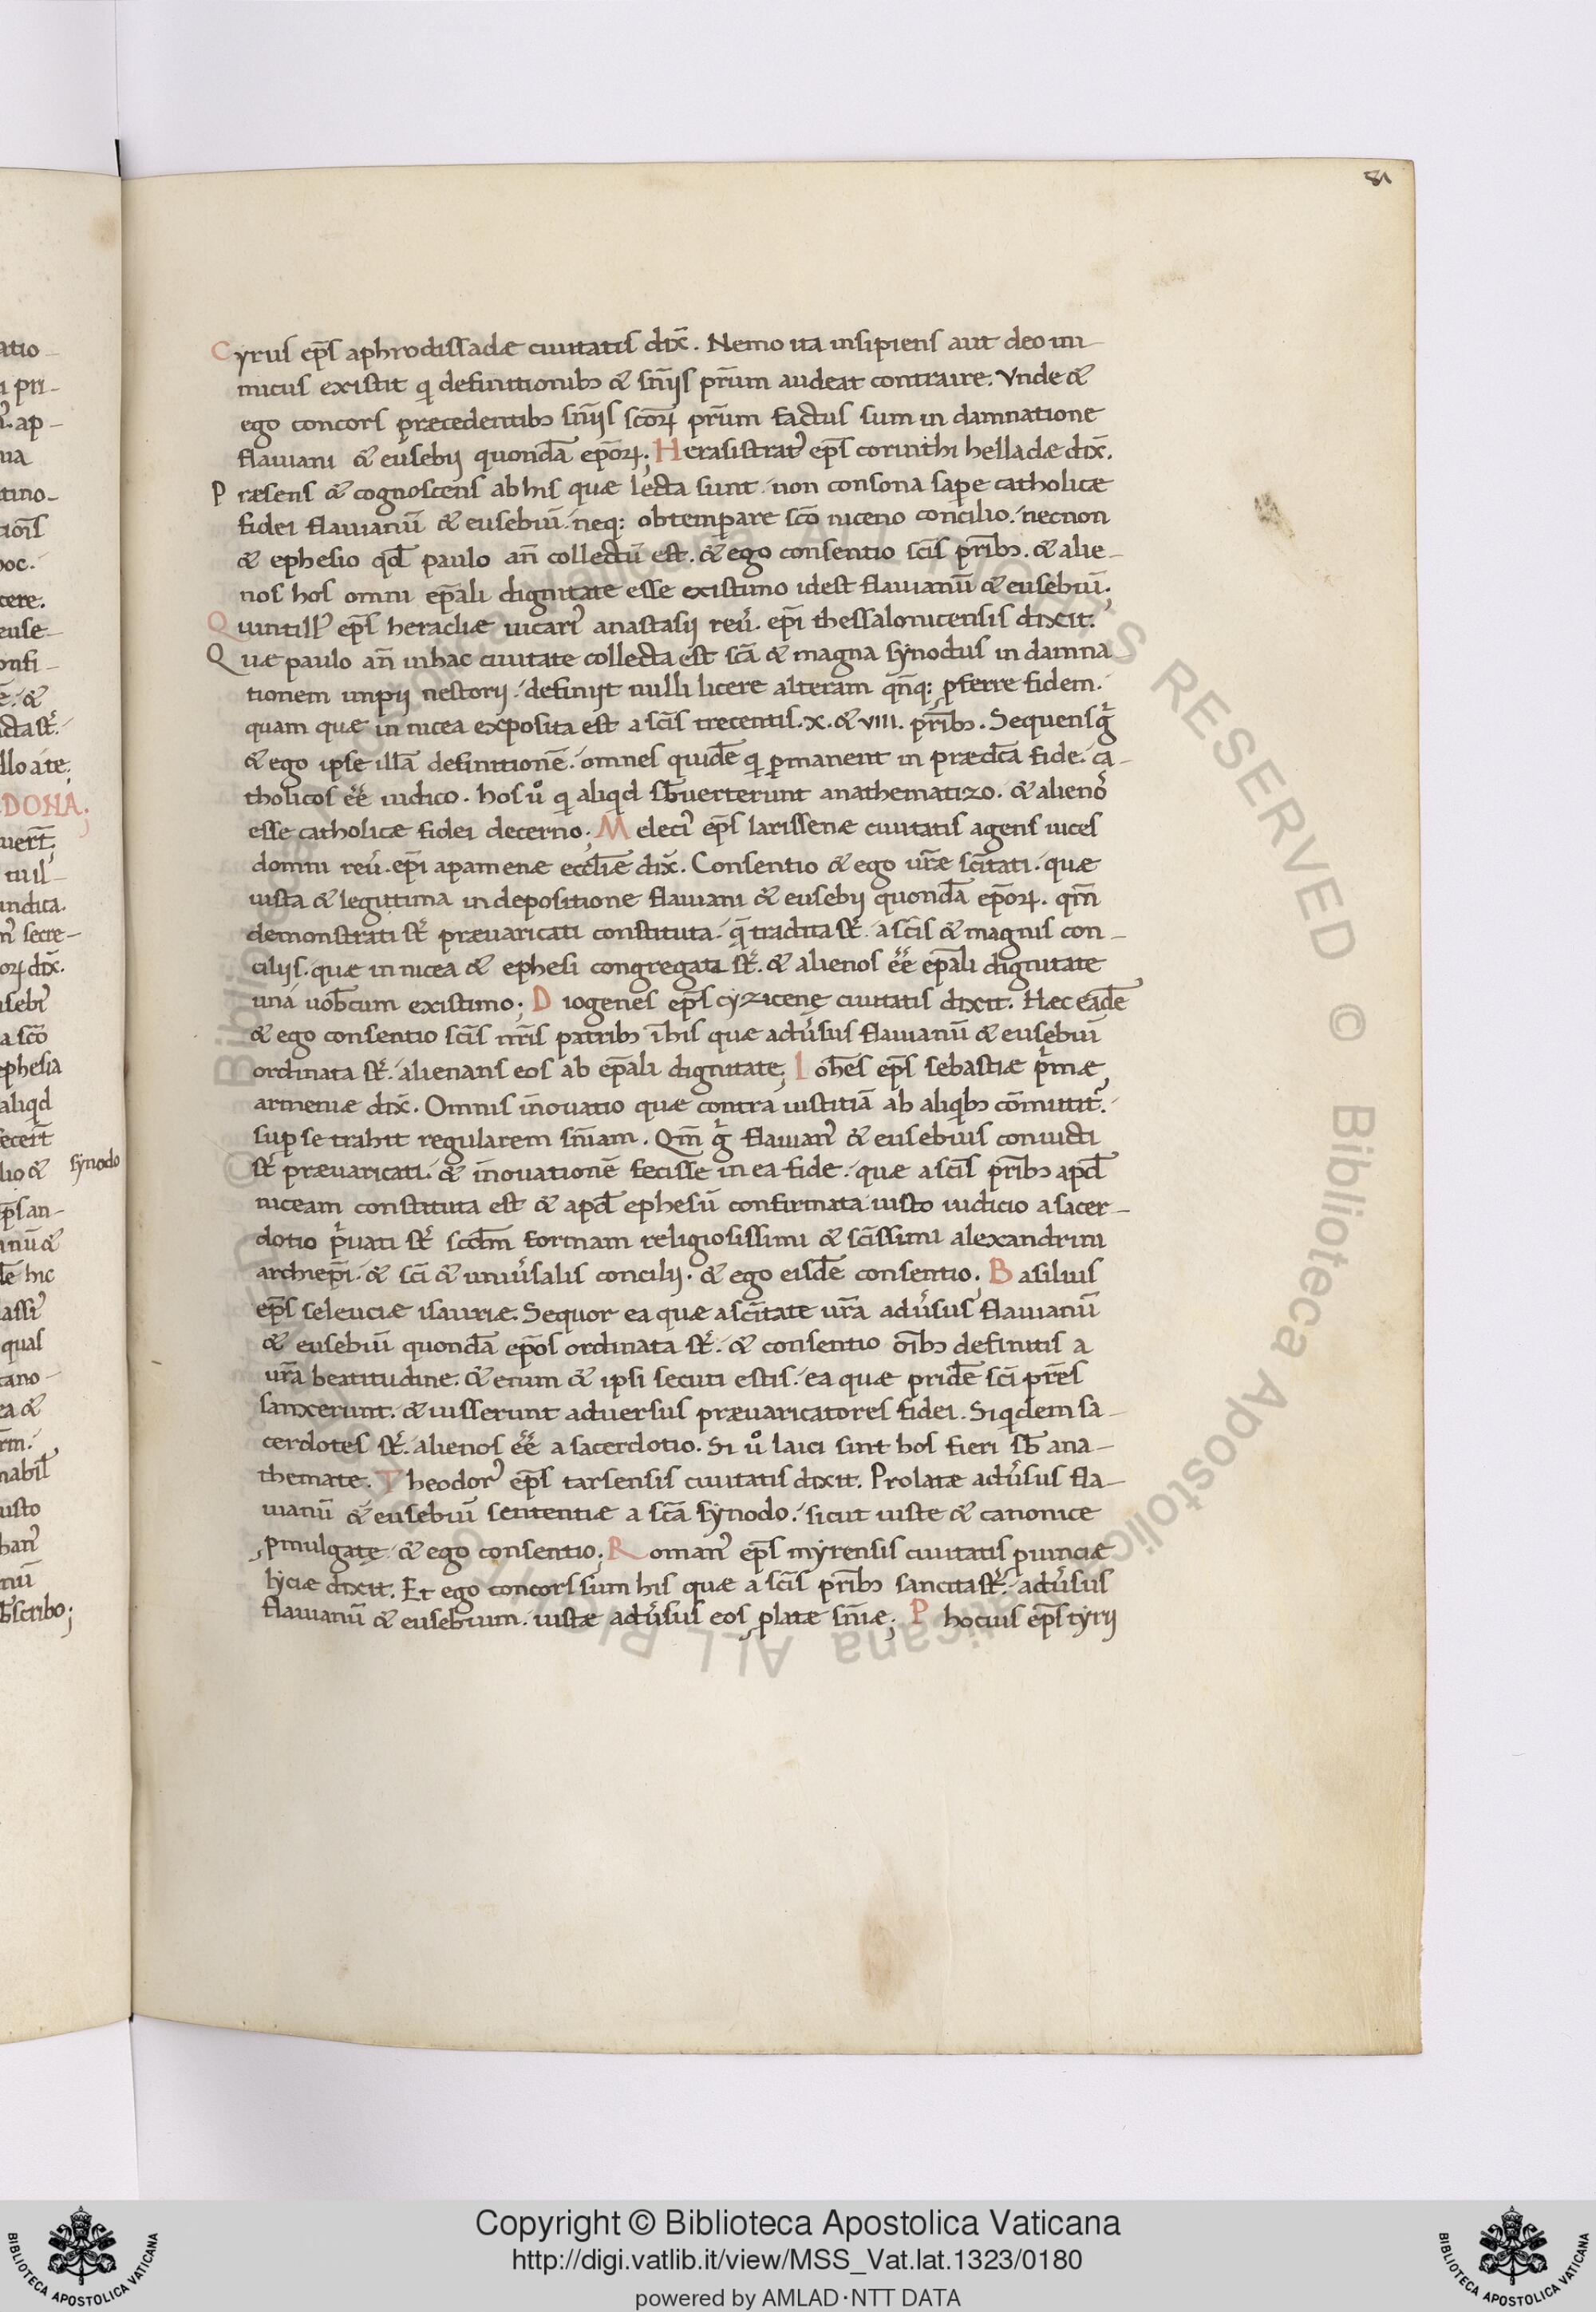 81
Cyrus ep̅s aphrodissadæ ciuitatis dix̅. Nemo ita insipiens aut deo ini-
micus existit qi definitionibꝫ & sn̅iis pr̅um audeat contraire. Vnde &
ego concors præcedentibꝫ sn̅iis sc̅oꝝ pr̅um factus sum in damnatione
flauiani & eusebij quonda̅ ep̅oꝝ; Herasistrat᾿ ep̅s corinthi helladæ dix̅.
Præsens & cognoscens ab his quæ lecta sunt. non consona sape catholicæ
fidei flauianu̅ & eusebiu̅. neq: obtempare sc̅o niceno concilio. necnon
& ephesio qd̅ paulo an̅ collectu̅ est. & ego consentio sc̅is pr̅ibꝫ. & alie-
nos hos omni ep̅ali dignitate esse existimo idest flauianu̅ & eusebiu̅;
Quintill᾿ ep̅s heracliæ uicari᾿ anastasij reu᾿. ep̅i thessalonicensis dixit.
Quæ paulo an̅ in hac ciuitate collecta est sc̅a & magna synodus in damna-
tionem impij nestorij. definijt nulli licere alteram qn̅q: ꝓferre fidem.
quam quæ in nicea exposita est a sc̅is trecentis. X. & VIII. pr̅ibꝫ. Sequens g᾿
& ego ipse illa̅ definitione̅. omnes quide̅ qi ꝑmanent in prædc̅a fide. ca-
tholicos ee̅ iudico. hos u᾿ qi aliqid sb̅uerterunt anathematizo. & alieno᾿
esse catholicæ fidei decerno; Meleci᾿ ep̅s larissenæ ciuitatis agens uices
domni reu᾿. ep̅i apamenæ eccl̅iæ dix̅. Consentio & ego ur̅æ sc̅itati. quæ
iusta & legitima in depositione flauiani & eusebij quonda̅ ep̅oꝝ. qm̅
demonstrati st᾿ præuaricati constituta. q̅ tradita st᾿. a sc̅is & magnis con-
cilijs. quæ in nicea & ephesi congregati st᾿. & alienos ee̅ ep̅ali dignitate
una uob̅cum existimo; Diogenes ep̅s cyzicenę ciuitatis dixit. Hæc eade̅
& ego consentio sc̅is nr̅is patribꝫ i̅ his quæ adu᾿sus flauianu̅ & eusebiu̅
ordinata st᾿. alienans eos ab ep̅ali dignitate; Ioh̅es ep̅s sebastiæ p᾿mæ
armeniæ dix̅. Omnis in̅ouatio quæ contra iustitia̅ ab aliqibꝫ co̅mittit᾿.
sup se trahit regularem sn̅iam. Qm̅ g᾿ flauian᾿ & eusebius conuicti
st᾿ præuaricati. & in̅ouatione̅ fecisse in ea fide. quæ a sc̅is pr̅ibꝫ apd̅
niceam constituta est & apd̅ ephesu̅ confirmata iusto iudicio a sacer-
dotio p᾿uati st᾿ scd̅m formam religiosissimi & sc̅issimi alexandrini
archiep̅i. & sc̅i & uniu᾿salis concilij. & ego eisde̅ consentio. Basilius
ep̅s seleuciæ isauriæ. Sequor ea quæ a sc̅itate ur̅a adu᾿sus flauianu̅
& eusebiu̅ quonda̅ ep̅os ordinata st᾿. & consentio oi̅bꝫ definitis a
ur̅a beatitudine. & enim & ipsi secuti estis. ea quæ pride̅ sc̅i pr̅es
sanxerunt. & iusserunt aduersus præuaricatores fidei. Si qidem sa-
cerdotes st᾿. alienos ee̅ a sacerdotio. Si u᾿ laici sint hos fieri sb̅ ana-
themate. Theodor᾿ ep̅s tarsensis ciuitatis dixit. Prolatæ adu᾿sus fla-
uianu̅ & eusebiu̅ sententiæ a sc̅a synodo. sicut iuste & canonice
ꝓmulgatę & ego consentio; Roman᾿ ep̅s myrensis ciuitatis ꝓuinciæ
lyciæ dixit. Et ego concors sum his quæ a sc̅is pr̅ibꝫ sancita st᾿. adu᾿sus
flauianu̅ & eusebium. iustæ adu᾿sus eos ꝓlatæ sn̅iæ; Phocius ep̅s tyrij
synodo
Copyright © Biblioteca Apostolica Vaticana
http://digi.vatlib.it/view/MSS_Vat.lat.1323/0180
powered by AMLAD·NTT DATA
BIBLIOTECA APOSTOLICA VATICANA
BIBLIOTECA APOSTOLICA VATICANA